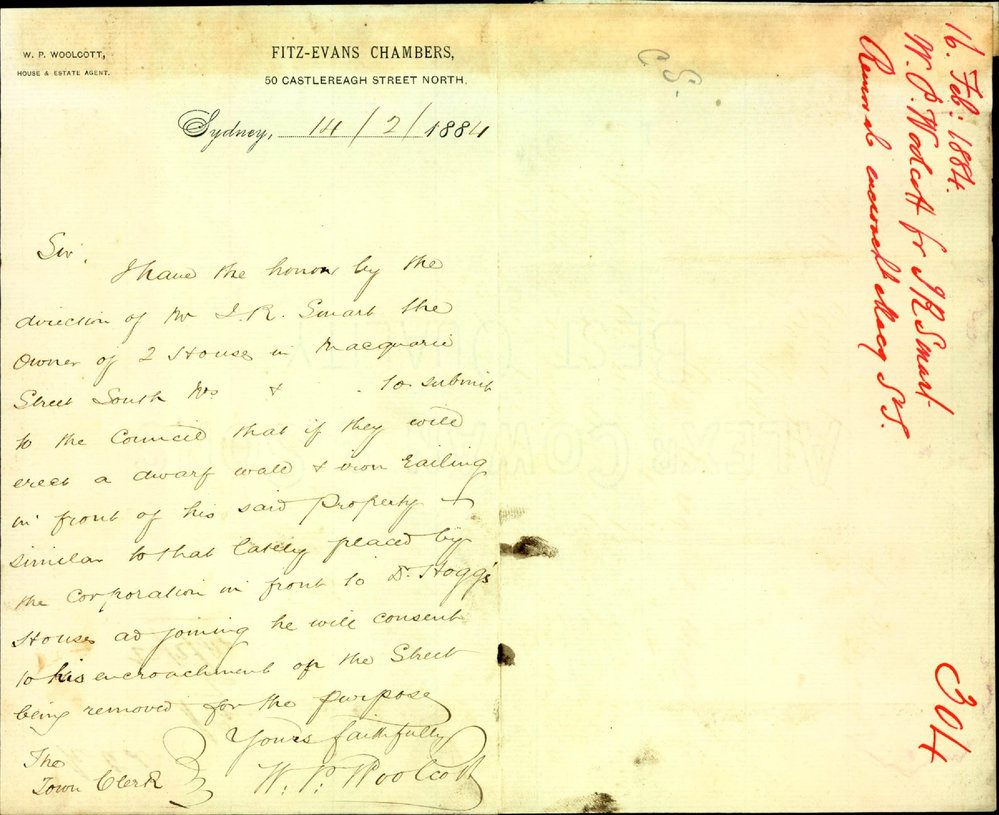 W. P. WOOLCOTT,
HOUSE & ESTATE AGENT.
FITZ-EVANS CHAMBERS,
50 CASTLEREAGH STREET NORTH,
Sydney, 14/2/1884
Sir,
I have the honor by the
direction of Mr J. R. Smart the
Owner of 2 Houses in Macquarie
Street South Nos & to submit
to the Council that if they will
erect a dwarf wall & iron railing
in front of his said Property
similar to that lately placed by
the Corporation in front to Dr. Hogg's
Houses adjoining he will consent
to his encroachment on the Street
being removed for the purpose
Yours faithfully
W. P. Woolcott
The
Town Clerk
C.S.
16. Feb: 1884.
W. P. Woolcott for J R Smart
Removal encroacht Macq St S.
304